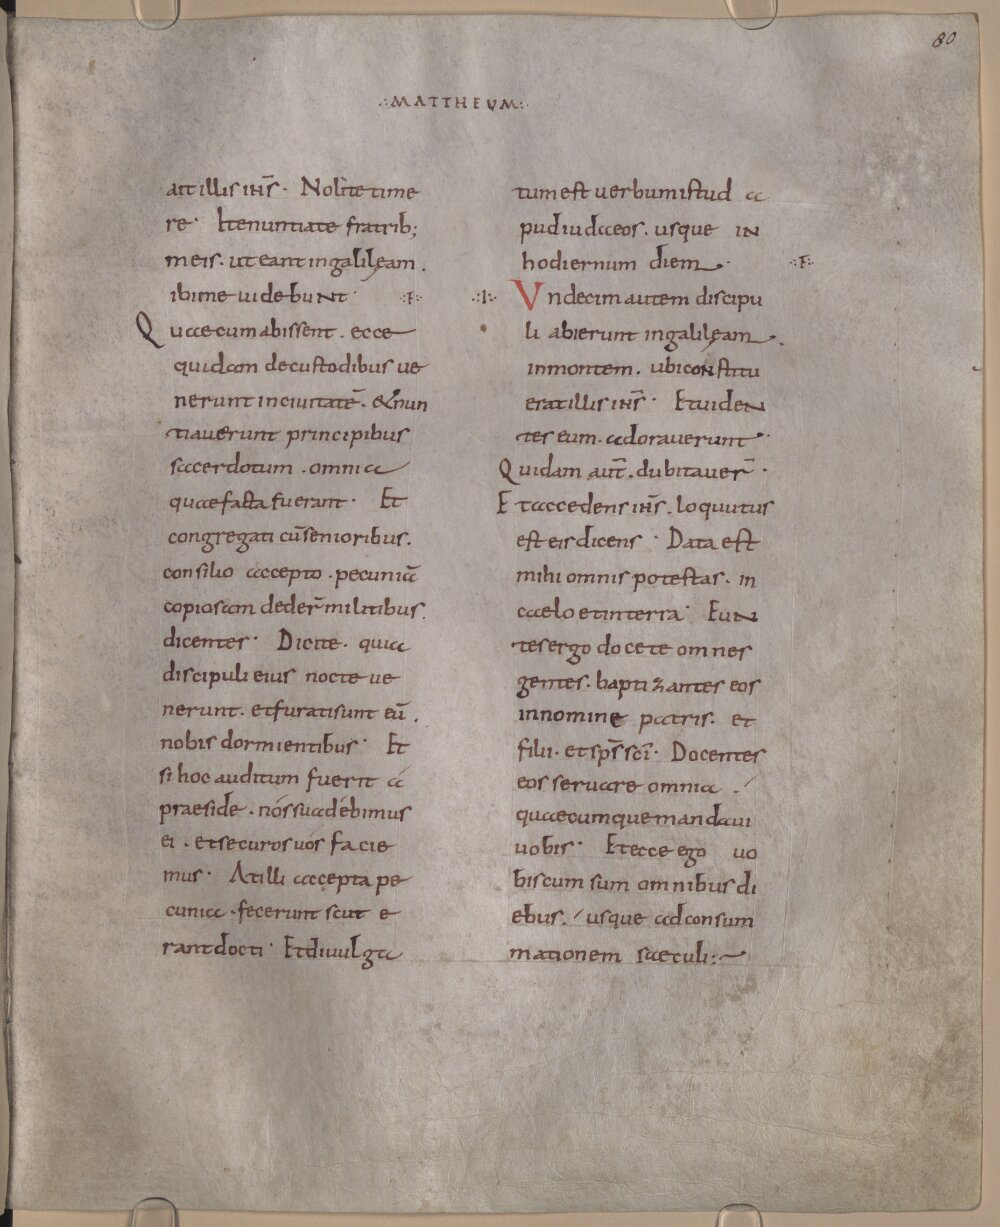 80
·:MATTHEUM:·
ait illis ih̅s · Nolite time
re · Ite nuntiate fratrib;
meis. ut eant in galilęam.
ibi me uidebunt · ·:F:·
Quae cum abissent. ecce
quidam de custodibus ue
nerunt in ciuitatē. & nun
tiauerunt principibus
sacerdotum. omnia
quae facta fuerant · Et
congregati cū senioribus.
consilio accepto. pecuniā
copiosam dederr̄ militibus.
dicentes · Dicite. quia
discipuli eius nocte ue
nerunt. et furati sunt eū.
nobis dormientibus · Et
si hoc auditum fuerit á
praeside. nós suadébimus
ei. et securos uós facie
mus · At illi accepta pe
cunia. fecerunt sicut e
rant docti · Et diuulga
tum est uerbum istud a
pud iudaeos. usque in
hodiernum diem · ·:F:·
·:I:· Undecim autem discipu
li abierunt in galilęam.
in montem. ubi constitu
erat illis ih̅s · Et uiden
tes eum. adorauerunt ·
Quidam aut̄. dubitauer̄ ·
Et accedens ih̅s. loquutus
est eis dicens · Data est
mihi omnis potestas. in
caelo et in terra · Eun
tes ergo docete omnes
gentes. baptizantes eos
in nomine patris. et
filii. et sp̅s sc̅i · Docentes
eos seruare omnia.
quaecumque mandaui
uobis · Et ecce ego uo
biscum sum omnibus di
ebus. usque ad consum
mationem saeculi:~